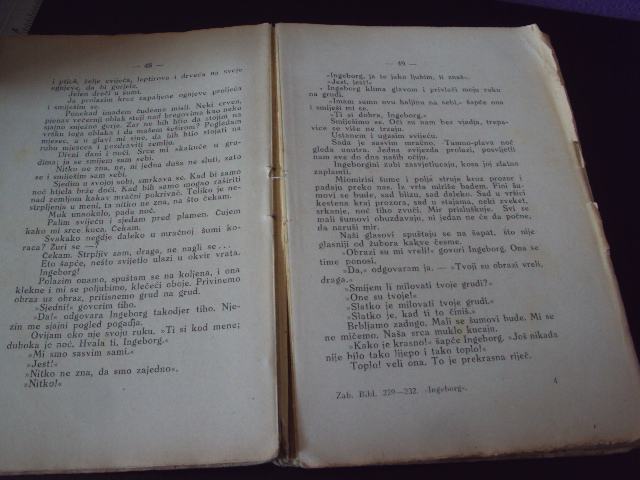 — 48 —
i ptica, želje cvijeća, leptirova i drveća na svoje
ognjeve, da bi gorjela.
Jelen droči u šumi.
Ja prolazim kroz zapaljene ognjeve proljeća
i smiješim se.
Ponekad imadem čudesne misli. Neki crven,
pjenav večernji oblak stoji nad bregovima kao neko
sjajno snježno gorje. Zar ne bih htio da stojim na
vršku toga oblaka i da mašem šeširom? Pogledam
mjesec, a u glavi mi sine, da bih htio stojati na
rubu mjeseca i pozdraviti zemlju.
Divni dani i noći. Srce mi skakuće u gru-
dima ja se smijem sam sebi.
Nitko ne zna, ni jedna duša ne sluti, zato
se i smiješim sam sebi.
Sjedim u svojoj sobi, smrkava se. Kad bi samo
noć htjela brže doći. Kad bih samo mogao raširiti
nad zemljom kakav mračni pokrivač. Toliko je ne-
strpljenja u meni, ta nitko ne zna, na što čekam.
Muk unaokolo, pada noć.
Palim svijeću i sjedam pred plamen. Čujem
kako mi srce kuca. Čekam.
Svakako negdje daleko u mračnoj šumi ko-
raca? Žuri se —?
Čekam. Strpljiv zam, draga, ne nagli se...
Eto šapće, nešto svijetlo ulazi u okvir vrata.
Ingeborg!
Polazim onamo, spuštam se na koljena, i ona
klekne i mi se poljubimo, klečeći oboje. Privinemo
obraz uz obraz, pritisnemo grud na grud.
»Sjedni!« govorim tiho.
»Da!« odgovara Ingeborg također tiho. Nje-
zin me sjajni pogled pogađa.
Ovijam oko nje svoju ruku. »Ti si kod mene;
duboka je noć. Hvala ti, Ingeborg.«
»Mi smo sasvim sami.«
»Jest!«
»Nitko ne zna, da smo zajedno«.
»Nitko!«
— 49 —
»Ingeborg, ja te jako ljubim, ti znaš«.
»Jest, jest!«
Ingeborg klima glavom i privlači moju ruku
na grudi.
»Imam samo ovu haljinu na sebi,« šapće ona
i smiješi mi se.
»Ti si dobra, Ingeborg.«
Smiješimo se. Oči su nam bez vladja, trepa-
vice se više ne trzaju.
Ustanem i ugasim svijeću.
Sada je sasvim mračno. Tamno-plava noć
gleda unutra. Jedna zvijezda prolazi, posvijetli
nam sve do dna naših očiju.
Ingeborgini zubi zasvjetlucaju, kosa joj zlatno
zaplamti.
Miomirisi šume i polja struje kroz prozor i
padaju preko nas. Iz vrta miriše badem. Fini šu-
movi se bude, sad blizu, sad daleko. Sad u vršci
kestena kraj prozora, sad u stajama, neki zveket,
srkanje, noć tiho zvuči. Mir prisluškuje. Svi se
mali šumovi obuzdavaju, ni jedan ne će da počne,
da naruši mir.
Naši glasovi spuštaju se na šapat, što nije
glasniji od žubora kakve česme.
»Obrazi su mi vreli,« govori Ingeborg. Ona se
time ponosi.
»Da,« odgovaram ja. — »Tvoji su obrazi vreli,
draga.«
»Smijem li milovati tvoje grudi?«
»One su tvoje!«
»Slatko je milovati tvoje grudi.«
»Slatko je, kad ti to činiš.«
Brbljamo zadugo. Mali se šumovi bude. Mi se
ne mičemo. Naša srca muklo kucaju.
»Kako je krasno!« šapće Ingeborg. »Još nikada
nije bilo tako lijepo i tako toplo!«
Toplo! veli ona. To je prekrasna riječ.
Zab. Bibl. 229—232. »Ingeborg«.
4